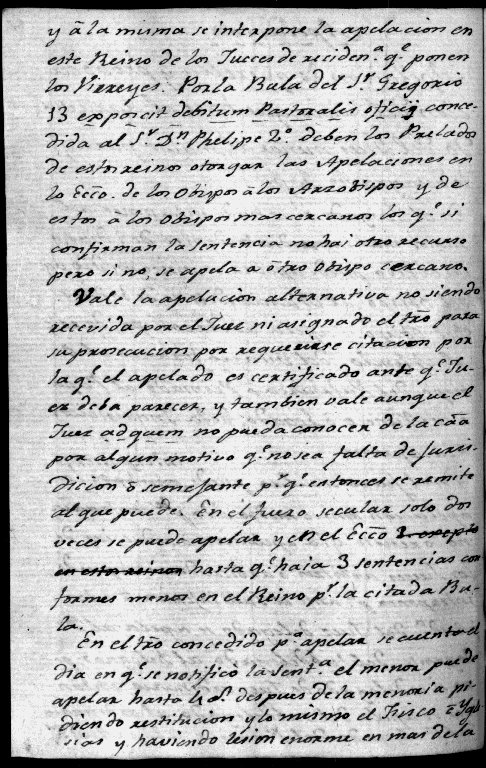 y â la misma se interpone la apelacion en
este Reino de los Jueces de reciden.ª q.ᵉ ponen
los Virreyes. Por la Bula del S.ʳ Gregorio
13 exposcit debitum Pastoralis oficij conce-
dida al S.ʳ Dⁿ Phelipe 2.º deben los Prelados
de estos reinos otorgar las Apelaciones en
lo Ecco. de los Obispos â los Arzobispos y de
estos â los Obispos mas cercanos los q.ᵉ si
confirman la sentencia no hai otro recurso
pero si no, se apela a ōtro Obispo cercano.
Vale la apelacion alternativa no siendo
recevida por el Juez ni asignado el tro para
su prosecucion por requerirse citacion por
la q.ᵉ el apelado es certificado ante q.ᵉ Ju-
ez deba parecer, y tambien vale aunque el
Juez adquem no pueda conocer de la cāa
por algun motivo q.ᵉ no sea falta de Juris-
dicion ō semejante p.ʳ q.ᵉ entonces se remite
al que puede. En el fuero secular solo dos
veces se puede apelar y en el Ecco 3. excepto
en estos reinos hasta q.ᵉ haia 3 sentencias con
formes menos en el Reino p.ʳ la citada Bu-
la.
En el tro concedido p.ª apelar se cuenta el
dia en q.ᵉ se notificó la sent.ª el menor puede
apelar hasta 4 a.ˢ despues de la menoria pi-
diendo restitucion y lo mismo el Fisco é Ygle
sias y haviendo lesion enorme en mas de la